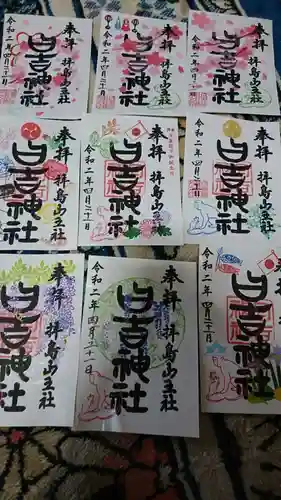 奉拝
拝島山王社
日吉神社
令和二年四月二十一日
奉拝
拝島山王社
日吉神社
令和二年四月二十一日
奉拝
拝島山王社
日吉神社
令和二年四月二十一日
奉拝
拝島山王社
日吉神社
奉拝
拝島山王社
日吉神社
令和二年四月二十一日
奉拝
拝島山王社
日吉神社
令和二年四月二十一日
奉拝
拝島山王社
日吉神社
奉拝
拝島山王社
日吉神社
令和二年四月二十一日
奉拝
拝島山王社
日吉神社
令和二年四月二十一日